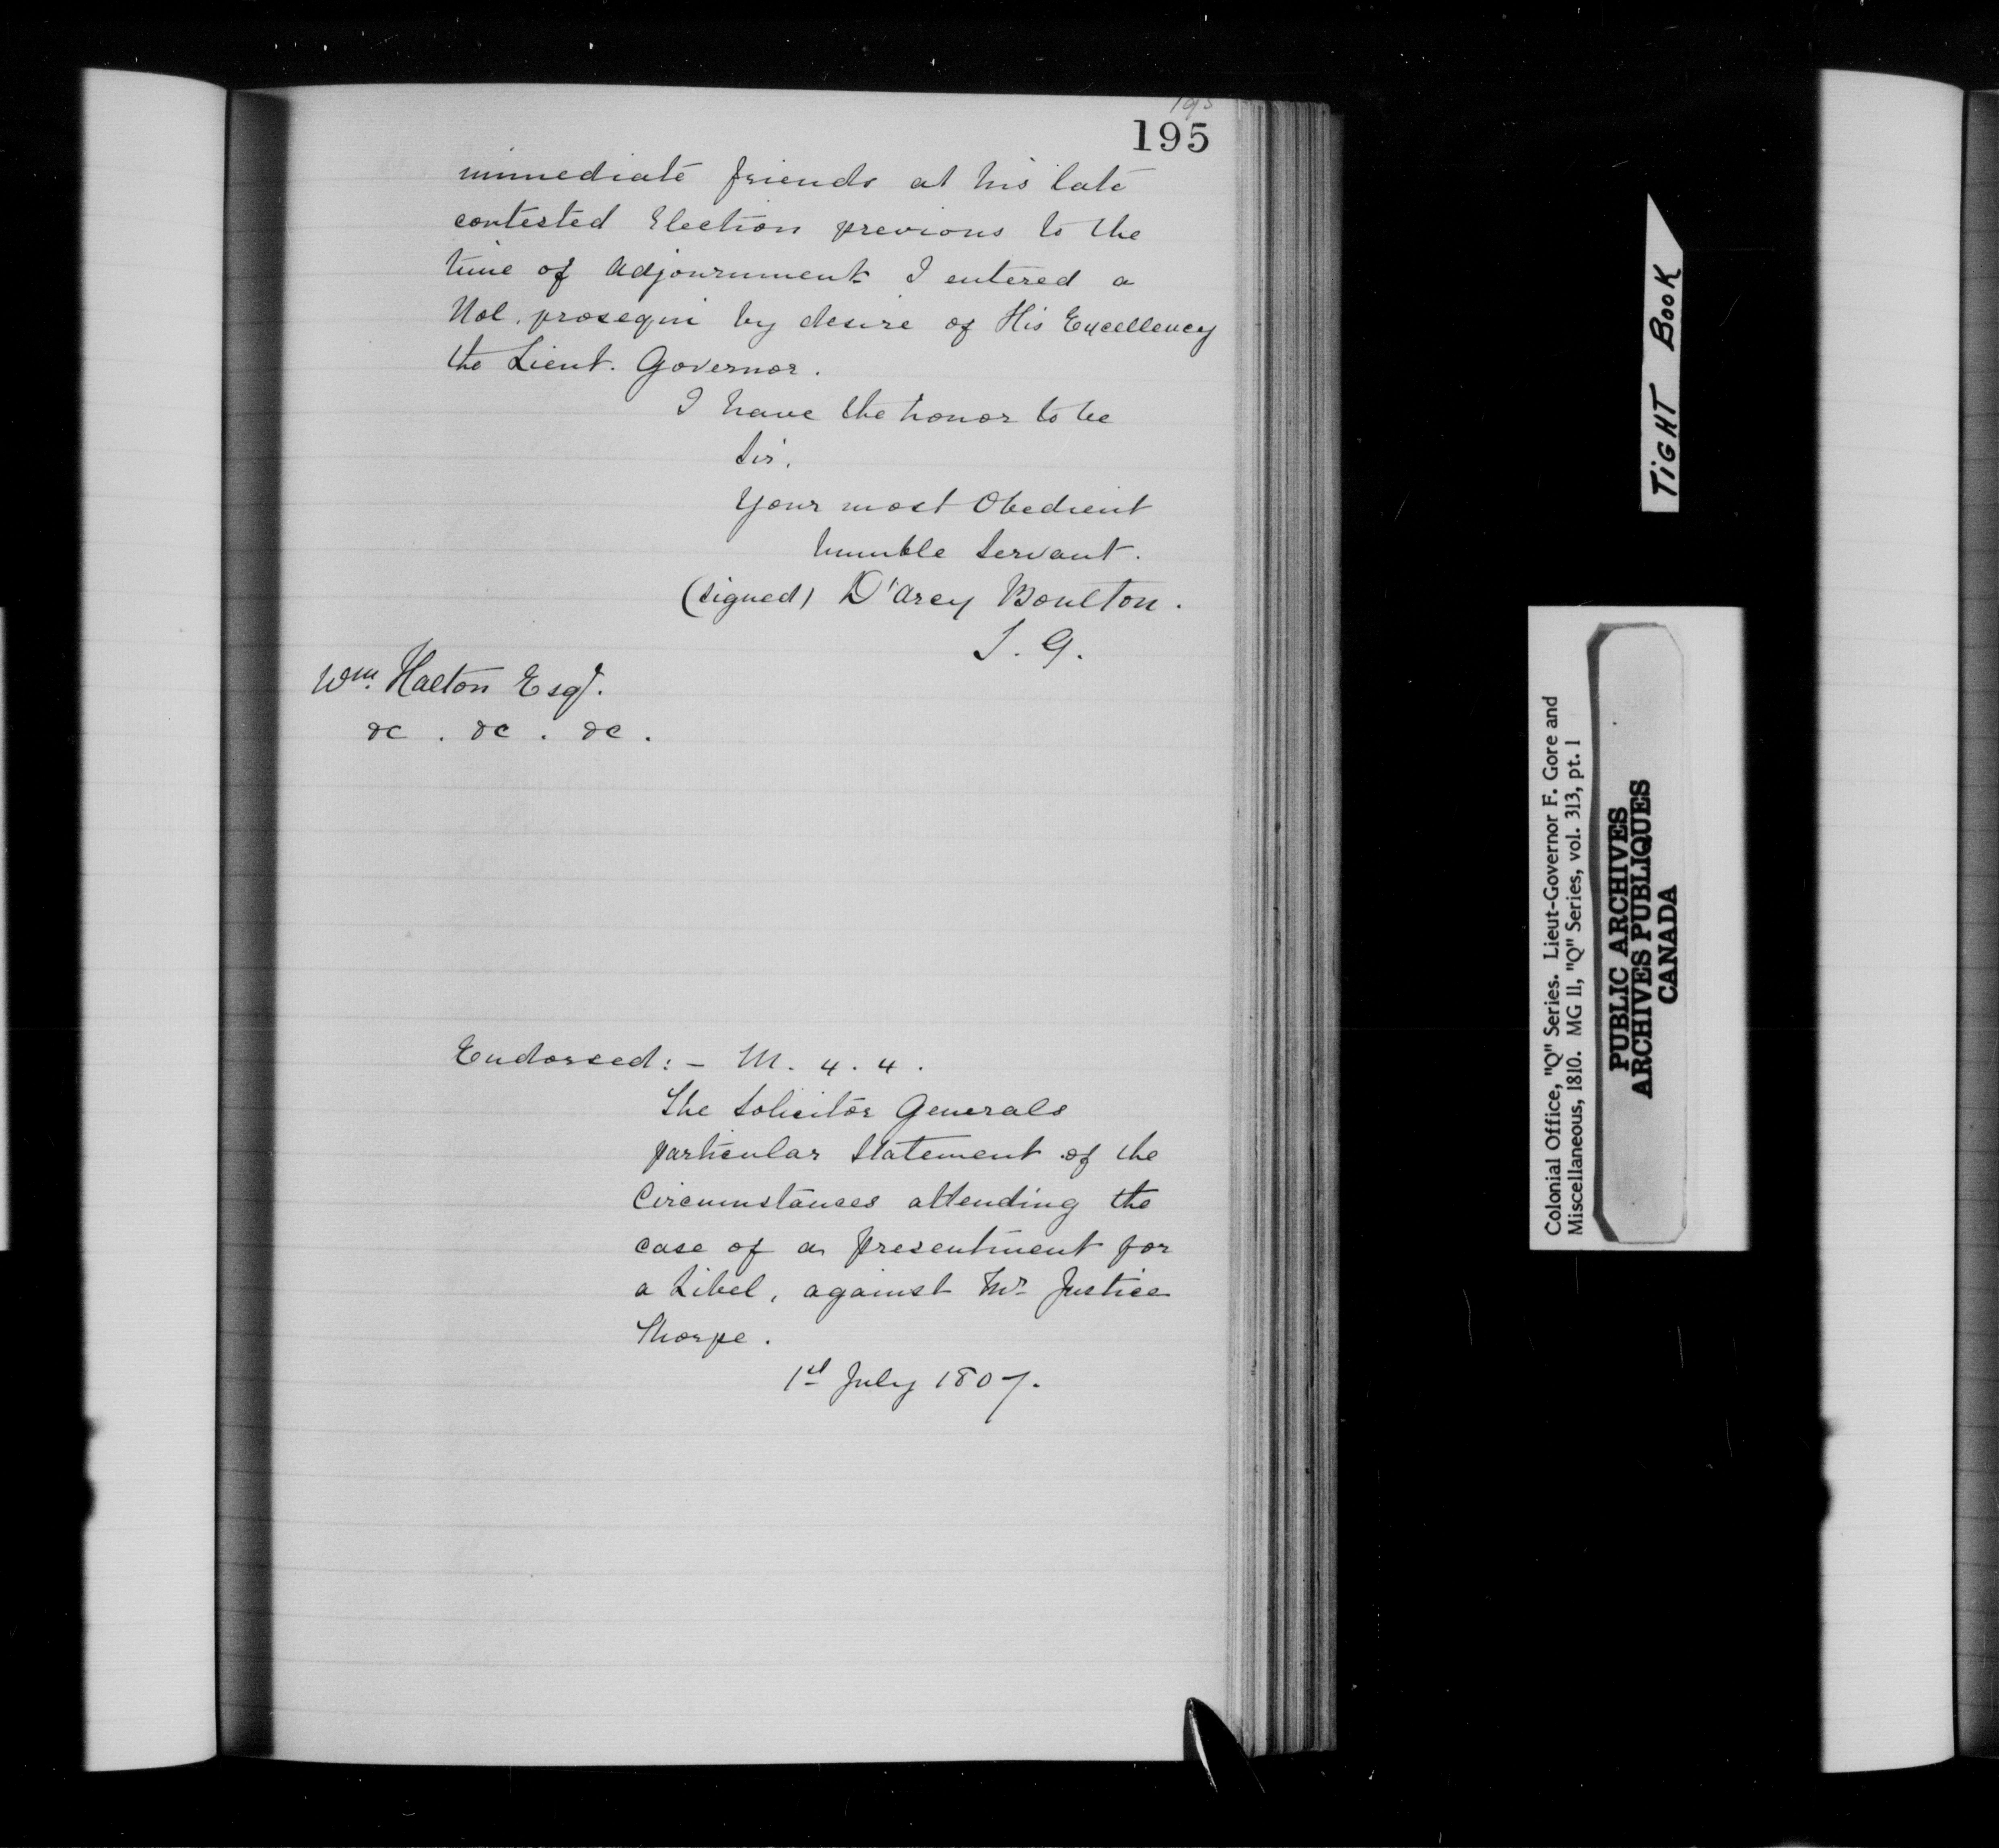 195
195
immediate friends at his late
contested Election previous to the
time of adjournment I entered a
Nol. prosequi by desire of His Excellency
the Lieut. Governor.
I have the honor to be
Sir,
Your most Obedient
humble Servant.
(signed) D'Arcy Boulton.
S. G.
Wm. Halton Esqr.
&c. &c. &c.
Endorsed: - M. 4. 4.
The Solicitor Generals
particular Statement of the
Circumstances attending the
case of a presentment for
a Libel, against Mr Justice
Thorpe.
1st July 1807.
TIGHT BOOK
Colonial Office, "Q" Series. Lieut-Governor F. Gore and
Miscellaneous, 1810. MG 11, "Q" Series, vol. 313, pt. 1
PUBLIC ARCHIVES
ARCHIVES PUBLIQUES
CANADA